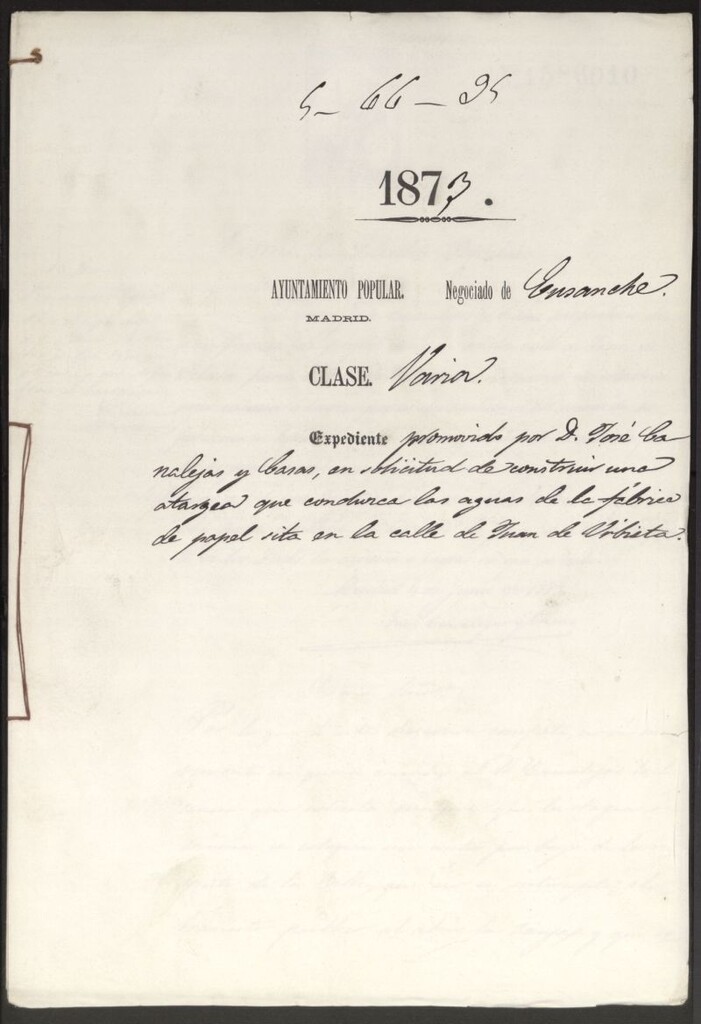 5-66-95
1873.
AYUNTAMIENTO POPULAR. Negociado de Ensanche.
MADRID.
CLASE. Varios.
Expediente promovido por D. José Ca
nalejas y Casas, en solicitud de construir una
atargea que conduzca las aguas de la fábrica
de papel sita en la calle de Juan de Urbieta.